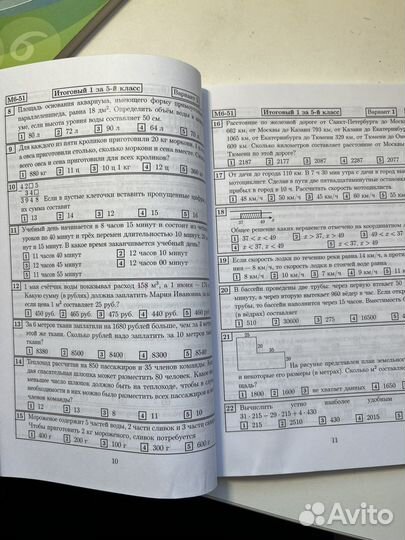 М6-51 Итоговый 1 за 5-й класс Вариант 1
8 Площадь основания аквариума, имеющего форму прямоугольного
параллелепипеда, равна 18 дм². Определить объём воды в
уме, если высота уровня воды составляет 50 см.
1 80 л 2 72 л 3 90 л 4 64 л 5
9 Для каждого из пяти кроликов приготовили 20 кг моркови.
а овса приготовили столько, сколько моркови и сена вместе.
всего овса и сена приготовили для всех кроликов?
1 880 кг 2 11 ц 3 10 ц 4 12 ц 5 360 кг
10 4 2 □ 5
3 4 □
3 9 4 8 Если в пустые клеточки вставить пропущенные цифры,
их сумма составит
1 13 2 14 3 12 4 15 5 16
11 Учебный день начинается в 8 часов 15 минут и состоит из
уроков по 40 минут и трёх перемен длительностью 10 минут,
и 15 минут. В какое время заканчивается учебный день?
1 11 часов 40 минут 2 12 часов 10 минут
3 11 часов 45 минут 4 12 часов 00 минут
5 11 часов 55 минут
12 1 мая счётчик воды показывал расход 158 м³, а 1 июня –
Какую сумму (в рублях) должна заплатить Марии Ивановна за
если цена 1 м³ составляет 25 руб.?
1 450 руб. 2 465 руб. 3 475 руб. 4 440 руб. 5 460
13 За 6 метров ткани заплатили на 1680 рублей больше, чем за 4
этой же ткани. Сколько рублей надо заплатить за 10 метров
ткани?
1 8380 2 8500 3 8400 4 8300 5 8540
14 Теплоход рассчитан на 850 пассажиров и 35 членов команды.
дая спасательная шлюпка может разместить 80 человек. Какое
меньшее число шлюпок должно быть на теплоходе, чтобы в случае
необходимости в них можно было разместить всех пассажиров и
членов команды?
1 12 2 13 3 8 4 11 5 10
15 Мороженое содержит 5 частей воды, 2 части сливок и 3 части
Чтобы приготовить 2 кг мороженого, сливок потребуется
1 400 г 2 200 г 3 100 г 4 300 г 5 600 г
10
М6-51 Итоговый 1 за 5-й класс Вариант 1
16 Расстояние по железной дороге от Санкт-Петербурга до Москвы
662 км, от Москвы до Казани 793 км, от Казани до Екатеринбурга
1065 км, от Екатеринбурга до Тюмени 329 км, от Тюмени до Омска
609 км. Сколько километров составляет расстояние от
Тюмени по этой дороге?
1 2187 2 2177 3 2087 4 2287 5 2077
17 От дачи до города 110 км. В 7 ч 30 мин утра с дачи в город
мотоциклист. Сделав в пути две пятнадцатиминутные остановки,
прибыл в город в 10 ч. Рассчитать скорость мотоциклиста.
1 48 км/ч 2 50 км/ч 3 51 км/ч 4 54 км/ч 5
18
37 49
Общее решение каких неравенств отмечено на координатном
1 37 < x < 49 2 x > 37, x > 49 3 49 < x < 37
4 x < 37, x < 49 5 x < 37, x > 49
19 Если скорость лодки по течению реки равна 14 км/ч, а против
нии – 8 км/ч, то скорость лодки в стоячей воде равна
1 10 км/ч 2 8 км/ч 3 9 км/ч 4 7 км/ч 5 11 км/ч
20 В бассейн проведены две трубы: через первую втекает 50
минуту, а через вторую вытекает 960 вёдер в час. Если открыть
трубы, то бассейн наполнится через 15 часов. Вместимость
(в вёдрах) составляет
1 510 2 30600 3 275 4 16500 5
21
На рисунке представлен план земельного
и некоторые его размеры (в метрах). Сколько м² составляет
щадь?
1 1800 2 1600 3 не хватает данных 4 1650
22 Вычислить устно наиболее удобным
31 · 215 – 29 · 215 + 4 · 430
1 215 2 2510 3 430 4 2015 5
11
Avito